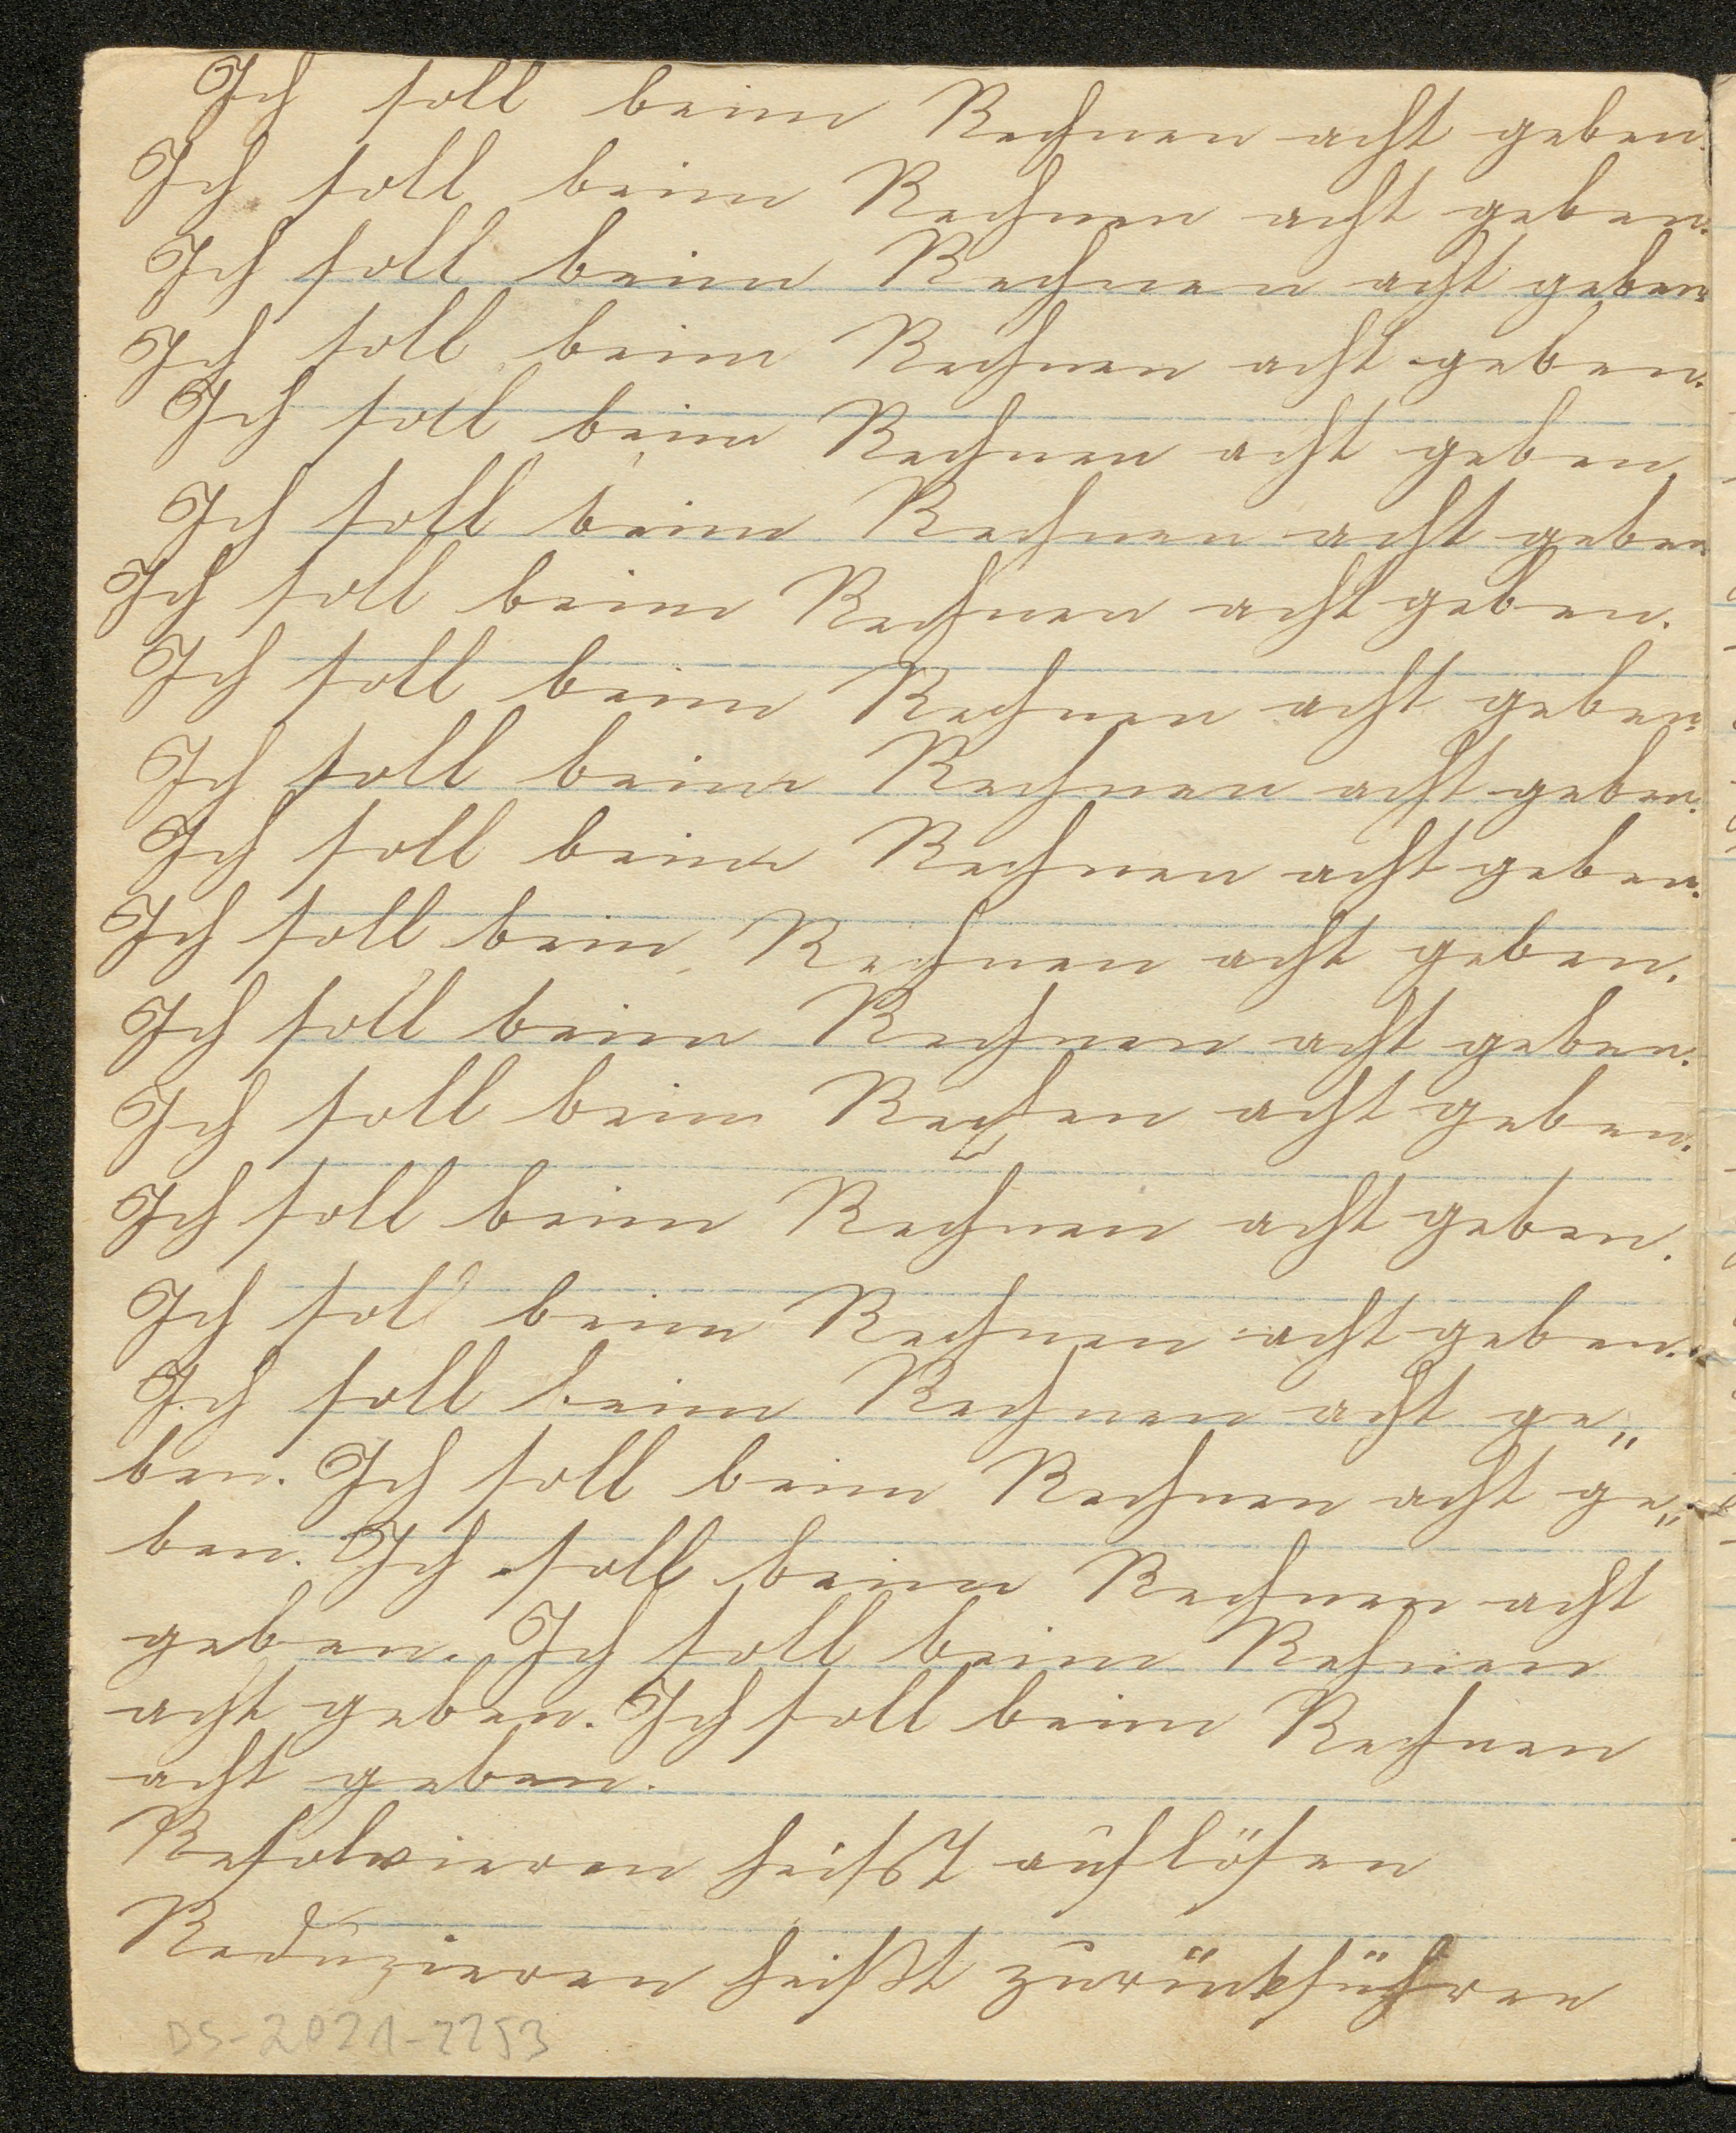 Ich soll beim Rechnen acht geben.
Ich soll beim Rechnen acht geben.
Ich soll beim Rechnen acht geben
Ich soll beim Rechnen acht geben.
Ich soll beim Rechnen acht geben.
Ich soll beim Rechnen acht geben
Ich soll beim Rechnen acht geben.
Ich soll beim Rechnen acht geben.
Ich soll beim Rechnen acht geben.
Ich soll beim Rechnen acht geben.
Ich soll beim Rechnen acht geben.
Ich soll beim Rechnen acht geben.
Ich soll beim Rechnen acht geben.
Ich soll beim Rechnen acht geben.
Ich soll beim Rechnen acht geben.
Ich soll beim Rechnen acht ge„
ben. Ich soll beim Rechnen acht ge„
ben. Ich soll beim Rechnen acht
geben. Ich soll beim Rehnen
acht geben. Ich soll beim Rechnen
acht geben.
Resolvieren heisst auflösen
Reduzieren heißt zurückführen
DS-2021-2253